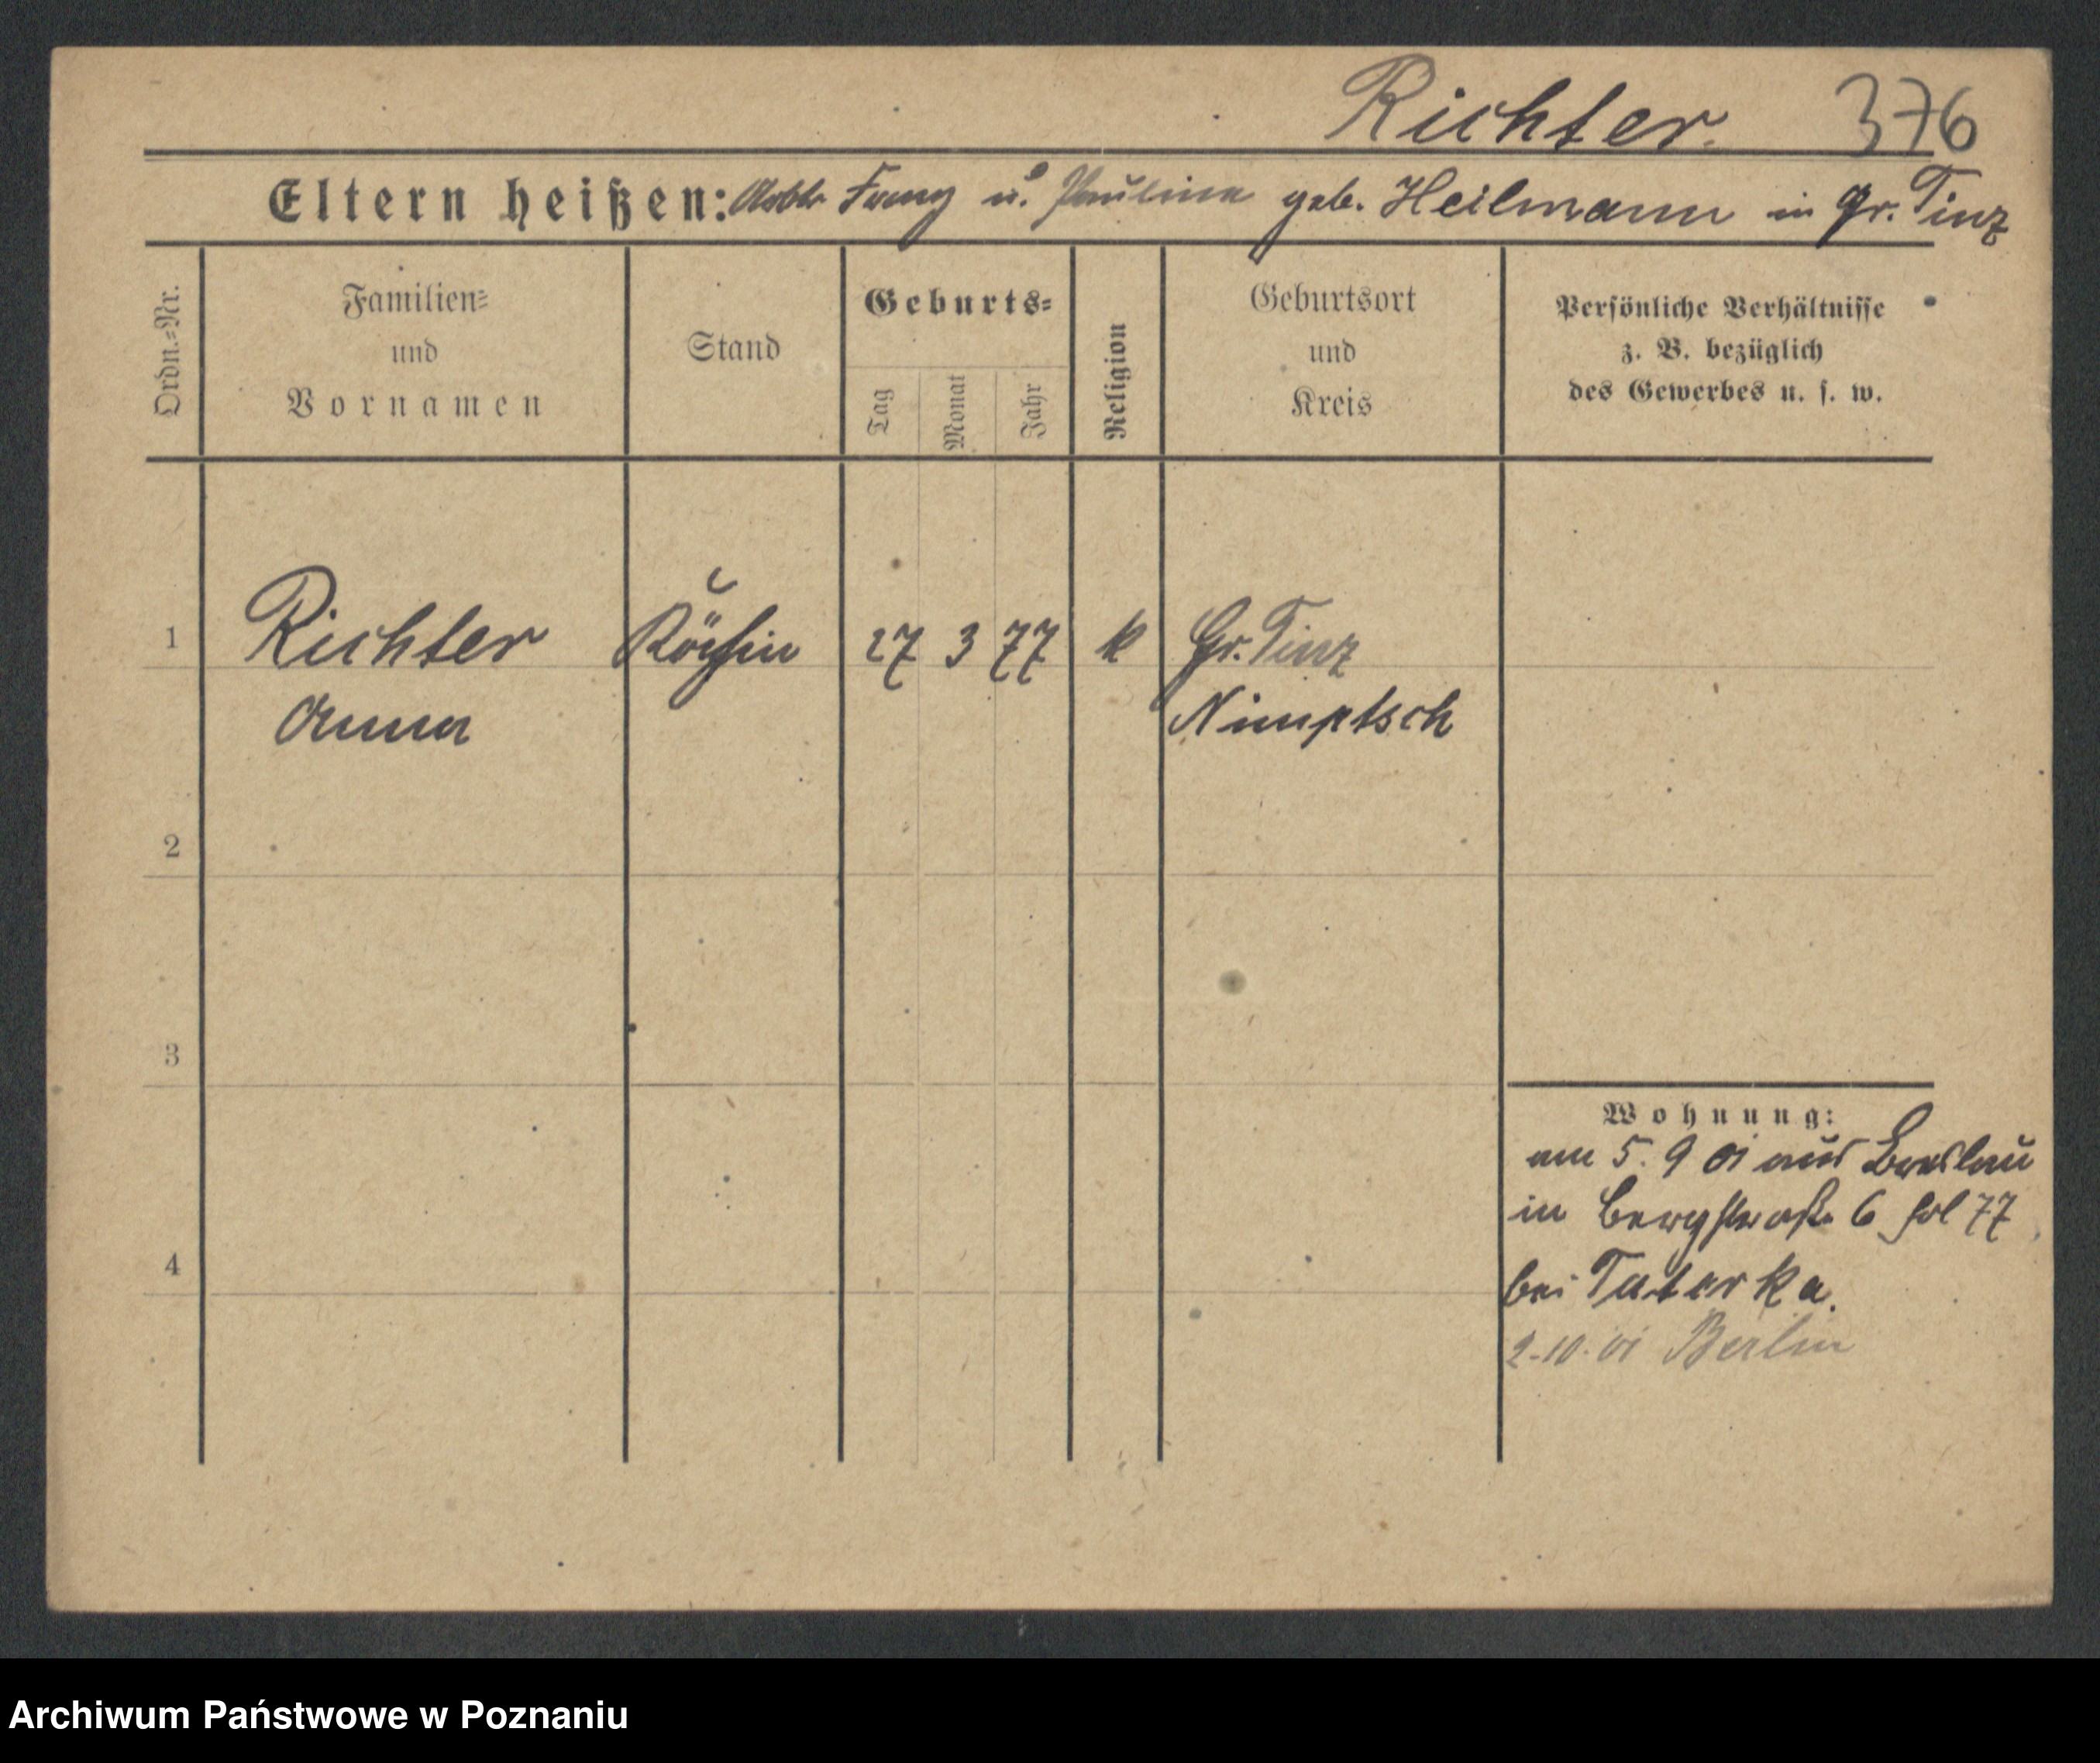 Richter. 376
Eltern heißen: Franz u. Pauline geb. Heilmann in Gr. Tinz
Ordn.=Nr.
Familien=
und
Vornamen
Stand
Geburts=
Tag
Monat
Jahr
Religion
Geburtsort
und
Kreis
Persönliche Verhältnisse
z. B. bezüglich
des Gewerbes u. s. w.
1 Richter Köchin 27 3 77 k Gr. Tinz
Anna Nimptsch
2
3
4
Wohnung:
am 5. 9 01 aus Breslau
in Bergstraße 6 fol 77
bei Taterka.
2.10.01 Berlin
Archiwum Państwowe w Poznaniu